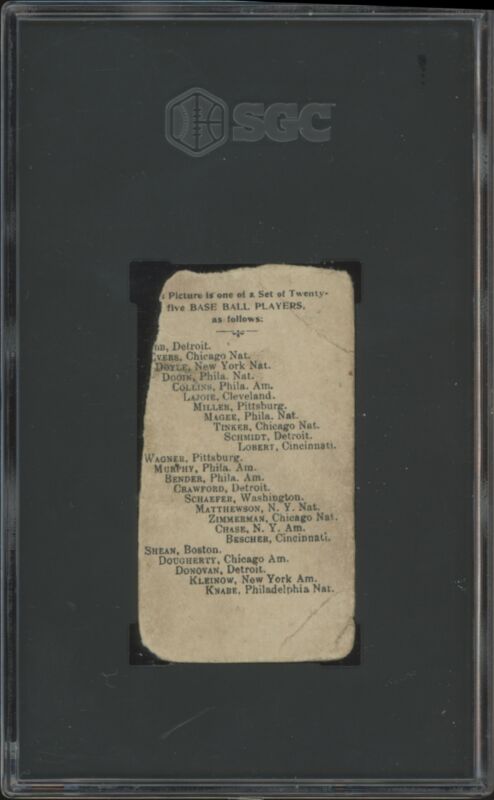 SGC
Picture is one of a Set of Twenty-
five BASE BALL PLAYERS,
as follows:
Detroit.
Evers, Chicago Nat.
Doyle, New York Nat.
Dooin, Phila. Nat.
Collins, Phila. Am.
Lajoie, Cleveland.
Miller, Pittsburg.
Magee, Phila. Nat.
Tinker, Chicago Nat.
Schmidt, Detroit.
Lobert, Cincinnati.
Wagner, Pittsburg.
Murphy, Phila. Am.
Bender, Phila. Am.
Crawford, Detroit.
Schaefer, Washington.
Matthewson, N. Y. Nat.
Zimmerman, Chicago Nat.
Chase, N. Y. Am.
Bescher, Cincinnati.
Shean, Boston.
Dougherty, Chicago Am.
Donovan, Detroit.
Kleinow, New York Am.
Knabe, Philadelphia Nat.